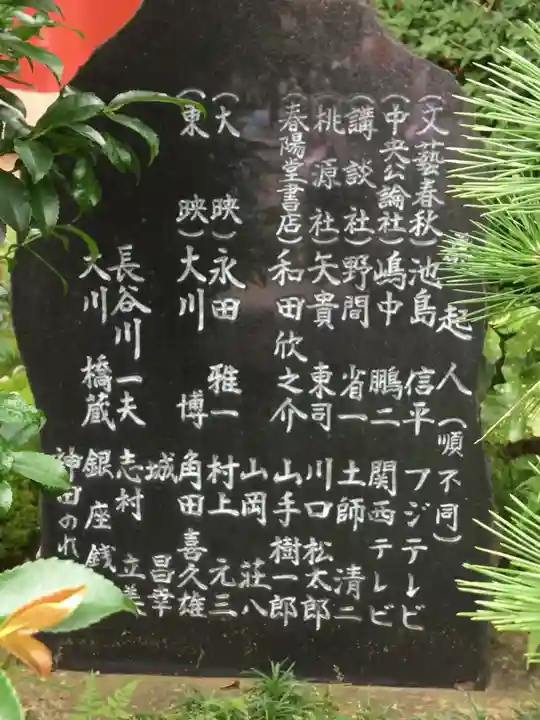 起人（順不同）
（文藝春秋）池島 信平 フジテレビ
（中央公論社）嶋中 鵬二 関西テレビ
（講談社）野間 省一 土師 清二
（桃源社）矢貴 東司 川口 松太郎
（春陽堂書店）和田欣之介 山手樹一郎
山岡 荘八
（大映）永田 雅一 村上 元三
（東映）大川 博 角田喜久雄
城 昌幸
長谷川一夫 志村 立美
大川 橋蔵 銀座銭
神田のれ